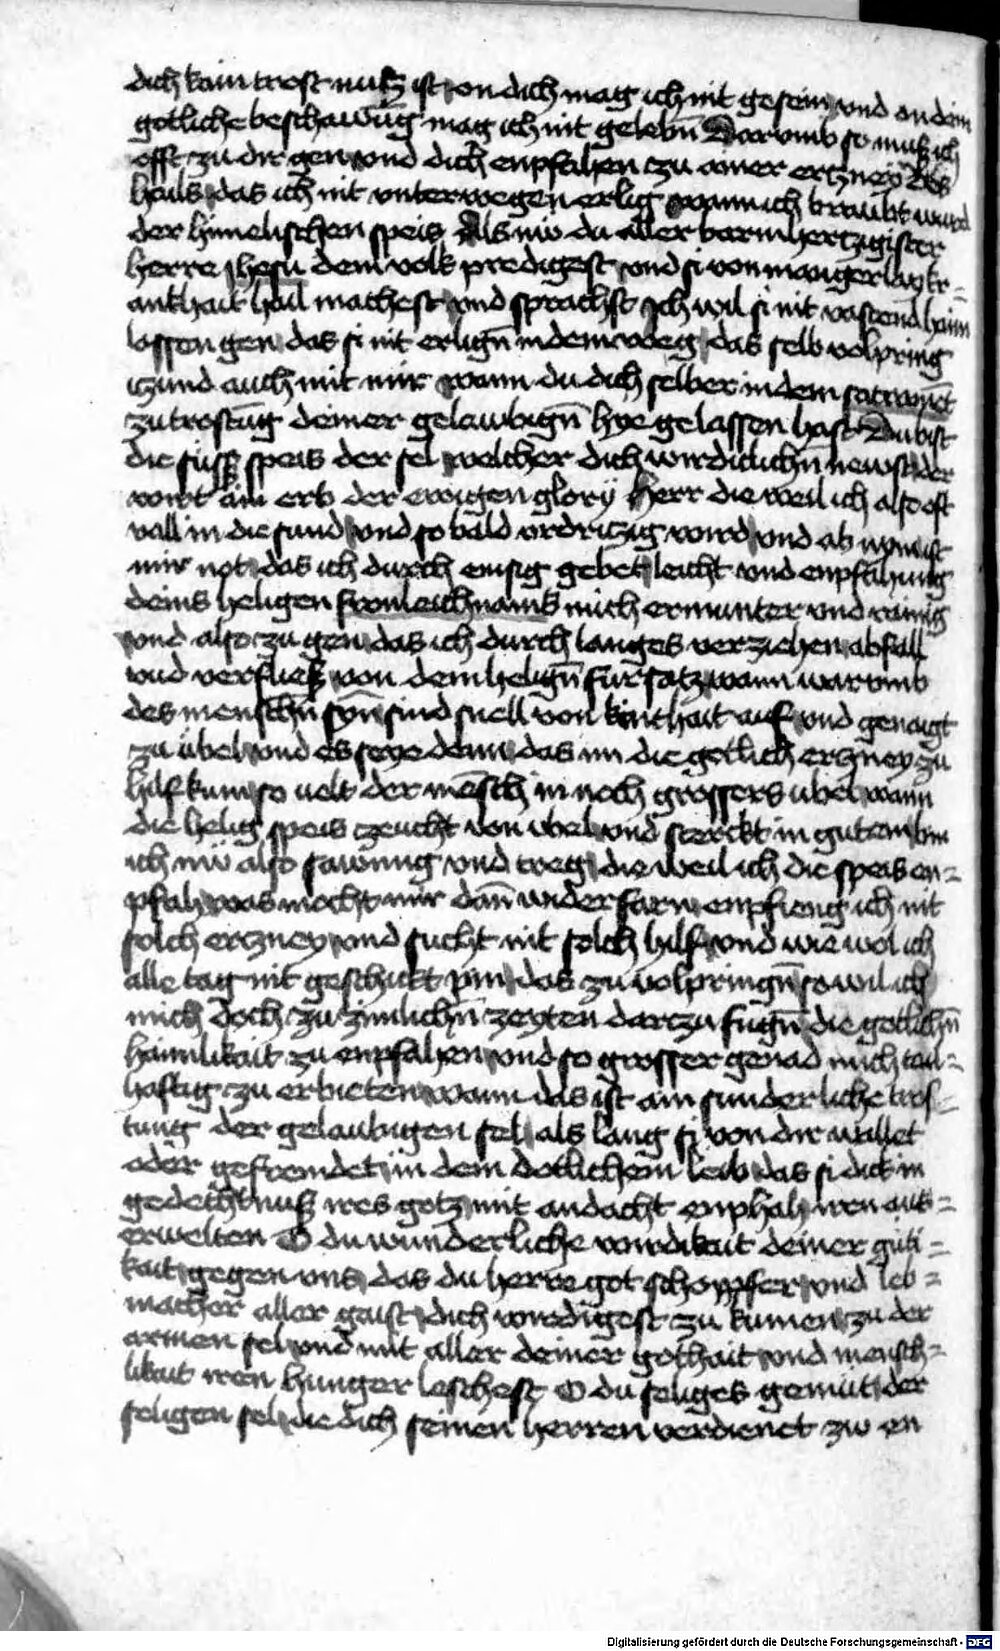 dich kain trost nutz ist on dich mag ich nit gesein und an dein
gotliche beschawūg mag ich nit gelebn̄ Dar umb so muß ich
offt zu dir gen und dich enpfahen czu ainer ertzney des
hails das ich nit unterwegen erlig wann ich beraubt wurd
der himelischen speis Als nw du aller barmhertzigister
herre Jhesu dem volk predigest und si von maniger lay kr=
ankhait hail machest und sprachst Ich wil si nit vastend haim
lassen gen das si nit erlign̄ in dem weg das selb volpring
iczund auch mit mir wann du dich selber in dem sacramēt
zu trostūg deiner gelawbign̄ hye gelassen hast Du bist
die süss speis der sel welcher dich wirdiclichn̄ newst der
wirt ain erb der ewigen glory Herr die weil ich also oft
vall in die sund und so bald vrdritzig wird und ab nym ist
mir not das ich durch emsig gebet peicht und enpfahung
deins heligen fronleichnams mich ermunter und rainig
und also zu gen das ich durch langes verziehen abfall
und verfließ von dem helign̄ fürsatz wann war umb
des menschn̄ syn̄ sind snell von kinthait auf und genaigt
zu übel und es seye denn das im die gotlich erczney zu
hilf kum so velt der mēsch in noch grössers übel wann
die helig speis czeucht von übel und sterckt in gutem bin
ich nw also sawmig und treg die weil ich die speis en=
pfah was mocht mir dan̄ widerfarn enpfieng ich nit
solch erczney und sucht nit solch hilf und wie wol ich
alle tag nit geschickt pin das zu volpringn̄ so wil ich
mich doch zu zimlichn̄ zeyten darczu fugn̄ die gotlichn̄
haimlikait zu enpfahen und so grosser genad mich tail=
hafftig zu erbieten wann das ist ain sunderliche tros=
tung der gelaubigen sel als lang si von dir wallet
oder gefremdet in dem dotlichem leib das si dick in
gedechtnuß ires gotz mit andacht enphah iren aus=
erwelten O du wunderliche wirdikait deiner güti=
kait gegen uns das du herre got schöpffer und leb=
macher aller gaist dich wirdigest zu kumen zu der
armen sel und mit aller deiner gothait und mensch=
likait iren hunger leschest O du seliges gemüt der
seligen sel die dich seinen herren verdienet zw en
Digitalisierung gefördert durch die Deutsche Forschungsgemeinschaft - DFG